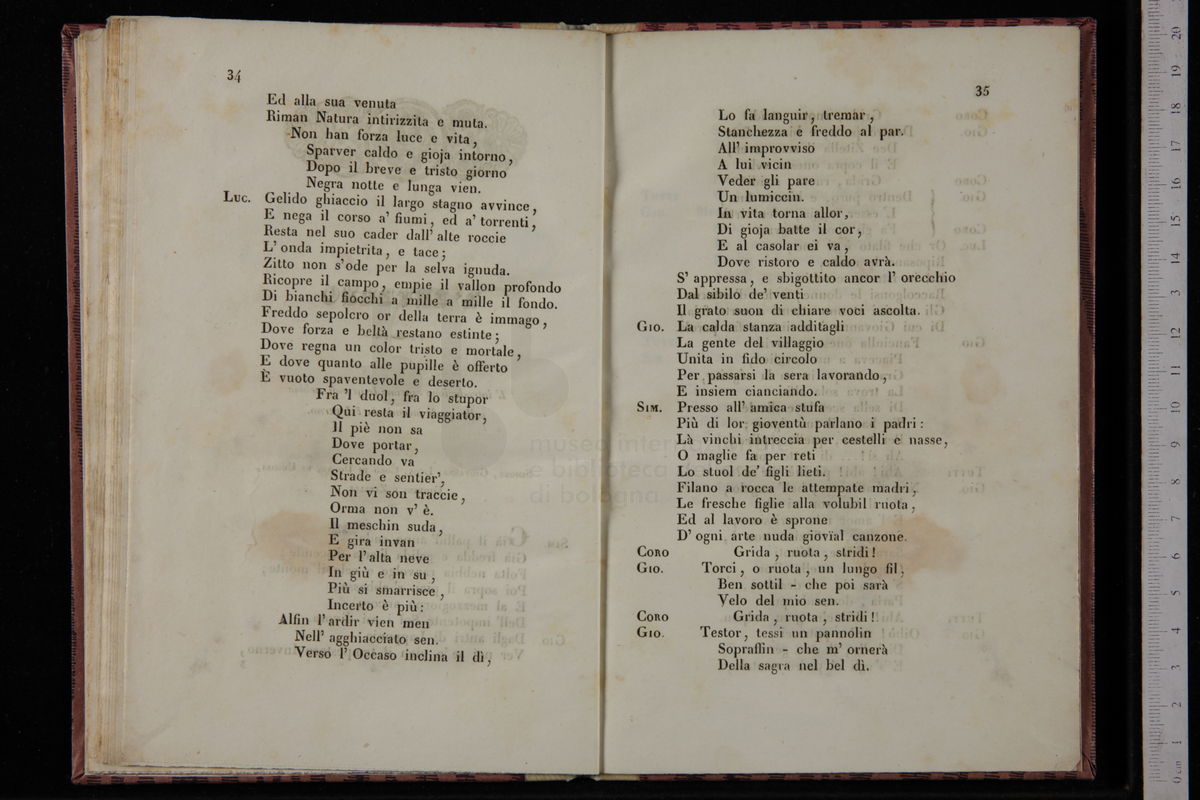 34
Ed alla sua venuta
Riman Natura intirizzita e muta.
Non han forza luce e vita,
Sparver caldo e gioja intorno,
Dopo il breve e tristo giorno
Negra notte e lunga vien.
Luc. Gelido ghiaccio il largo stagno avvince,
E nega il corso a' fiumi, ed a' torrenti,
Resta nel suo cader dall' alte roccie
L' onda impietrita, e tace;
Zitto non s'ode per la selva ignuda.
Ricopre il campo, empie il vallon profondo
Di bianchi fiocchi a mille a mille il fondo.
Freddo sepolcro or della terra è immago,
Dove forza e beltà restano estinte;
Dove regna un color tristo e mortale,
E dove quanto alle pupille è offerto
È vuoto spaventevole e deserto.
Fra 'l duol, fra lo stupor
Qui resta il viaggiator,
Il piè non sa
Dove portar,
Cercando va
Strade e sentier',
Non vi son traccie,
Orma non v' è.
Il meschin suda,
E gira invan
Per l'alta neve
In giù e in su,
Più si smarrisce,
Incerto è più:
Alfin l'ardir vien men
Nell' agghiacciato sen.
Verso l' Occaso inclina il dì,
35
Lo fa languir, tremar,
Stanchezza e freddo al par.
All' improvviso
A lui vicin
Veder gli pare
Un lumiccin.
In vita torna allor,
Di gioja batte il cor,
E al casolar ei va,
Dove ristoro e caldo avrà.
S' appressa, e sbigottito ancor l' orecchio
Dal sibilo de' venti
Il grato suon di chiare voci ascolta.
Gio. La calda stanza additagli
La gente del villaggio
Unita in fido circolo
Per passarsi la sera lavorando,
E insiem cianciando.
Sim. Presso all' amica stufa
Più di lor gioventù parlano i padri:
Là vinchi intreccia per cestelli e nasse,
O maglie fa per reti
Lo stuol de' figli lieti.
Filano a rocca le attempate madri,
Le fresche figlie alla volubil ruota,
Ed al lavoro è sprone
D' ogni arte nuda giovïal canzone.
Coro Grida, ruota, stridi!
Gio. Torci, o ruota, un lungo fil,
Ben sottil - che poi sarà
Velo del mio sen.
Coro Grida, ruota, stridi!
Gio. Testor, tessi un pannolin
Sopraffin - che m' ornerà
Della sagra nel bel dì.
museo inter
e biblioteca
di bologna